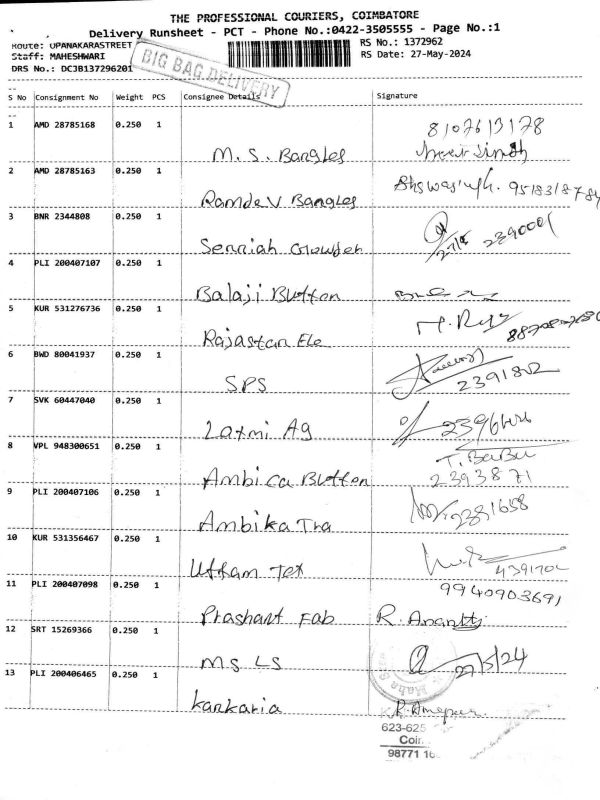 THE PROFESSIONAL COURIERS, COIMBATORE
Delivery Runsheet - PCT - Phone No.:0422-3505555 - Page No.:1
Route: UPANAKARASTREET
RS No.: 1372962
Staff: MAHESHWARI
RS Date: 27-May-2024
DRS No.: DCJB137296201
BIG BAG DELIVERY
S No Consignment No Weight PCS Consignee Details Signature
1 AMD 28785168 0.250 1
M. S. Bangles
8107613178
2 AMD 28785163 0.250 1
Ramdev Bangles
3 BNR 2344808 0.250 1
27/5
4 PLI 200407107 0.250 1
Balaji Button
5 KUR 531276736 0.250 1
Rajastan Ele
6 BWD 80041937 0.250 1
SPS
2391802
7 SVK 60447040 0.250 1
Laxmi Ag
8 VPL 948300651 0.250 1
Ambica Button
T. Babu
2393871
9 PLI 200407106 0.250 1
Ambika Tra
10 KUR 531356467 0.250 1
Uttam Tex
11 PLI 200407098 0.250 1
Prashant Fab
9940903691
R. Ananthi
12 SRT 15269366 0.250 1
MS LS
27/5/24
13 PLI 200406465 0.250 1
kankaria
623-625
Coim
98771 16